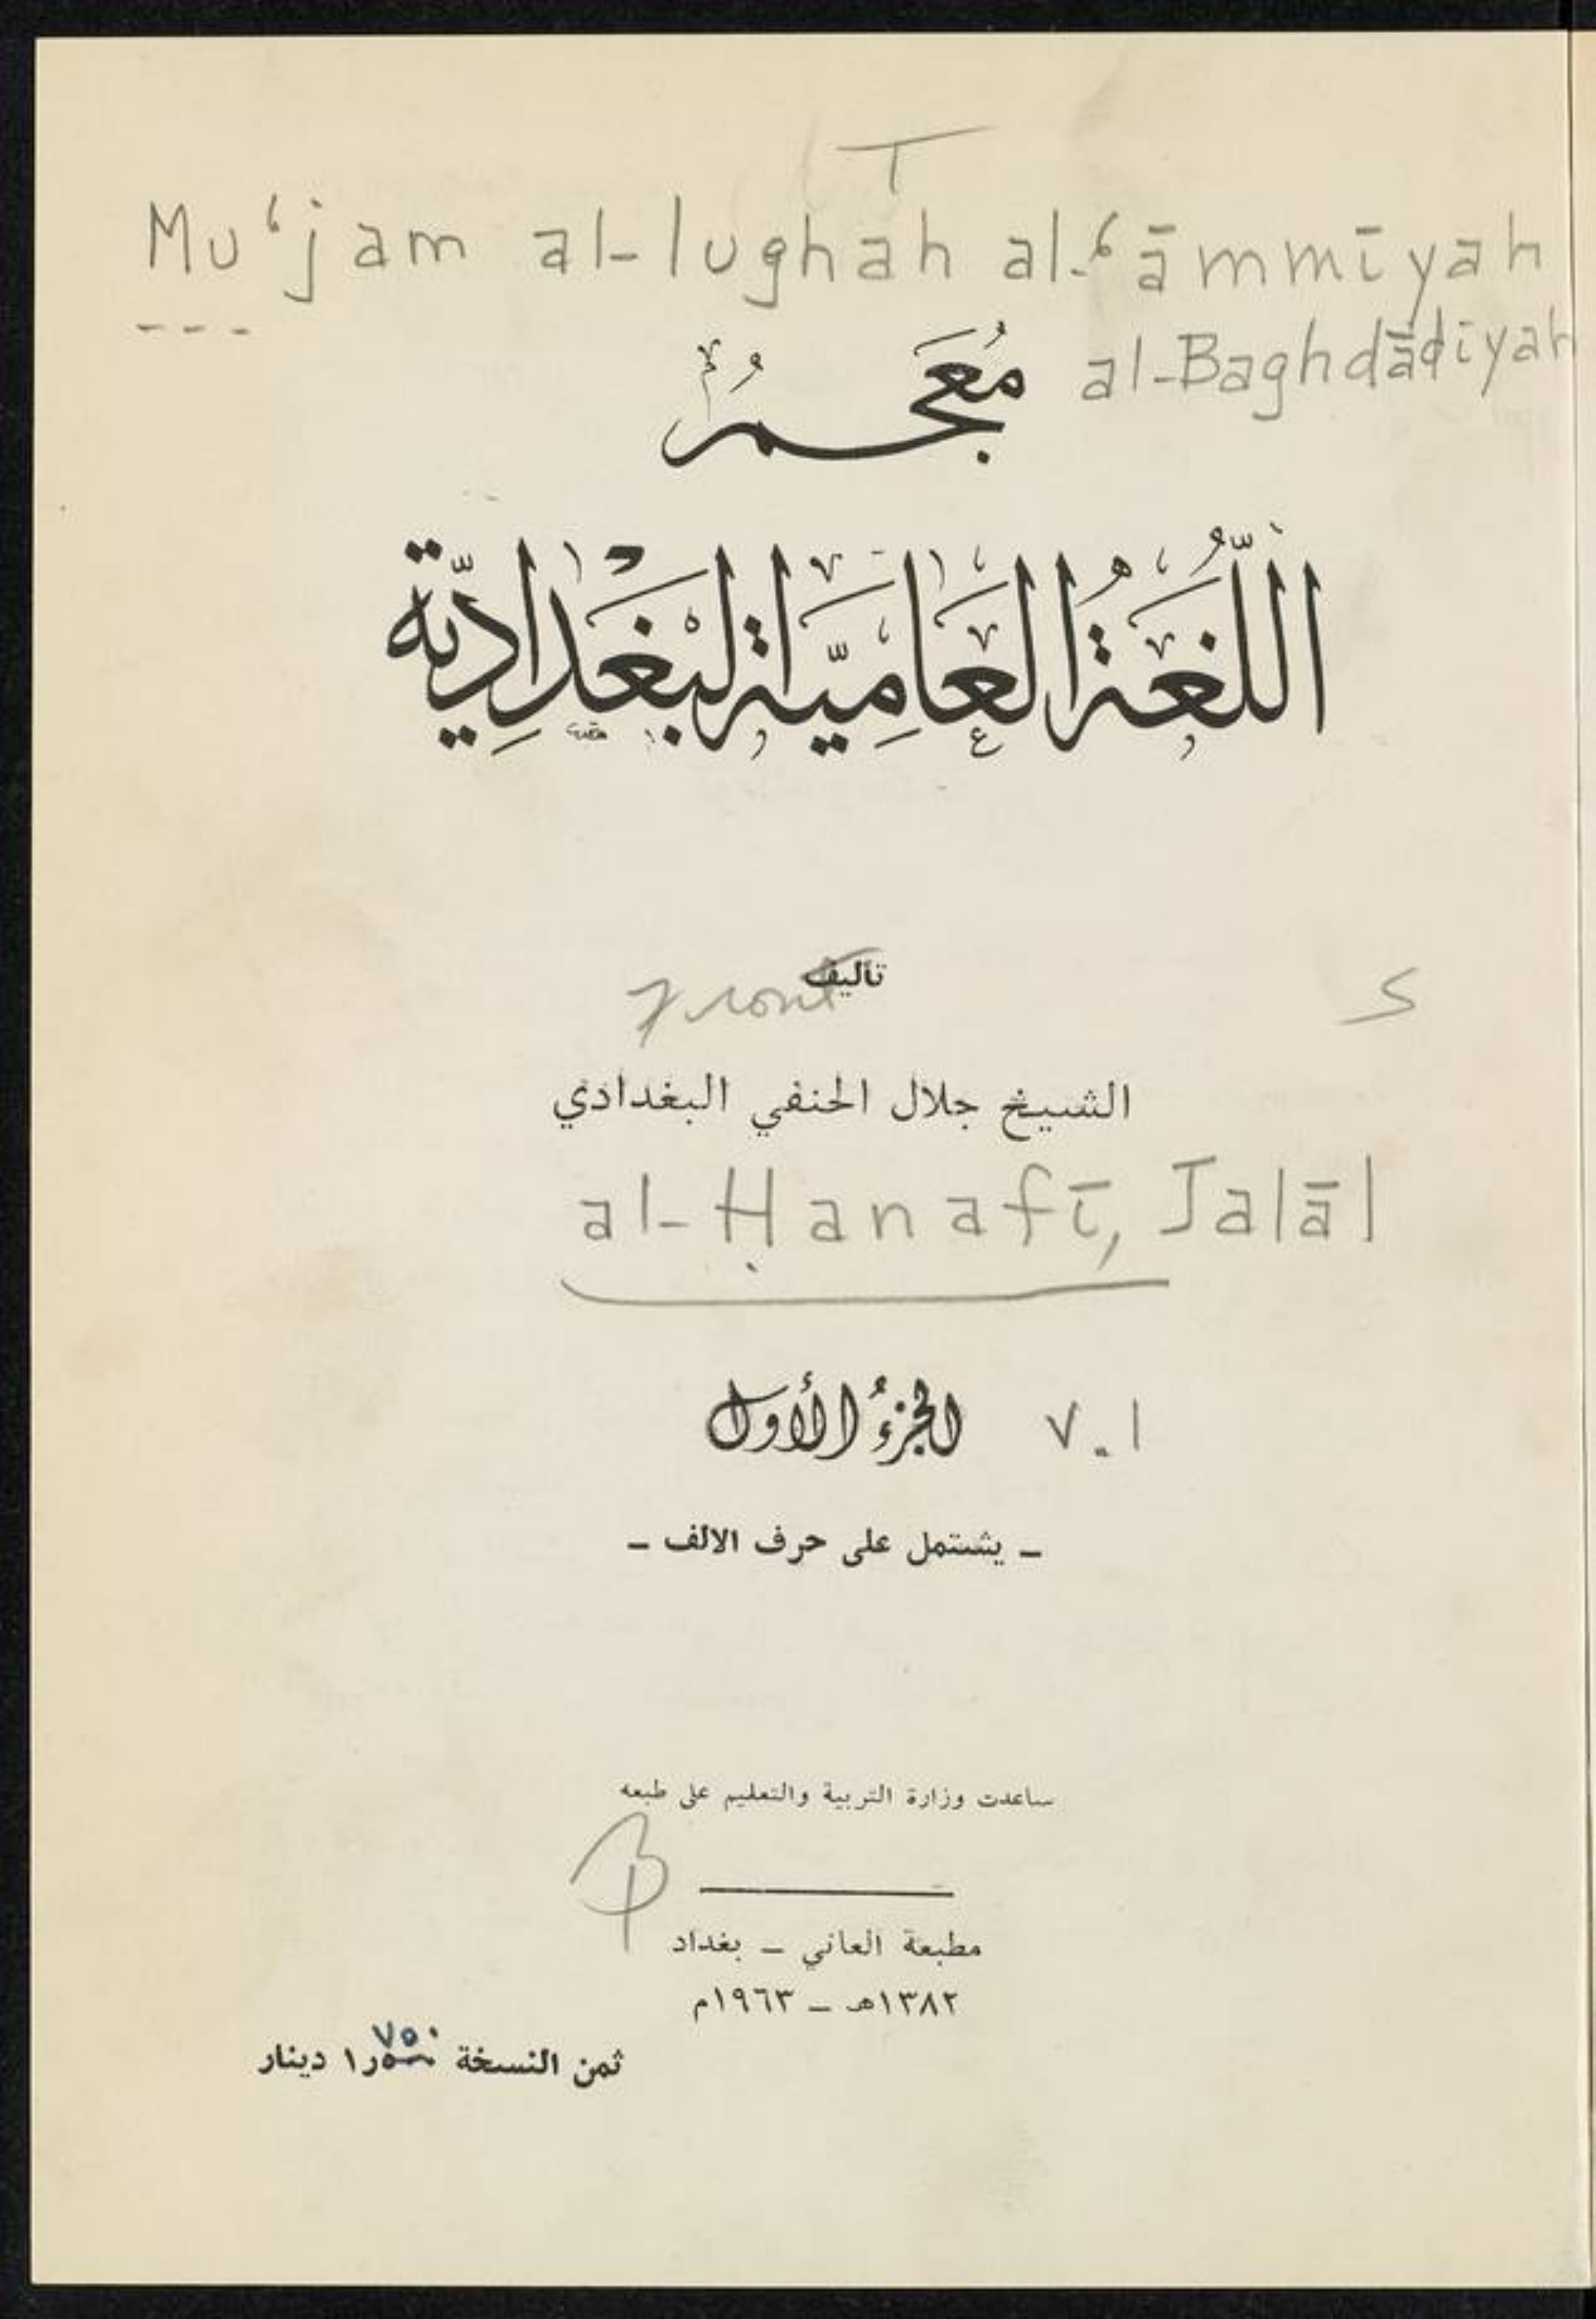 T
Mu‘jam al-lughah al-‘āmmīyah
al-Baghdādīyah
مُعْجَمُ
اللُّغَةُ العَامِيَّة البَغْدَادِيَّة
تأليف
front
الشيخ جلال الحنفي البغدادي
al-Ḥanafī, Jalāl
الجزءُ الأول
v.1
– يشتمل على حرف الالف –
ساعدت وزارة التربية والتعليم على طبعه
B
مطبعة العاني – بغداد
١٣٨٢هـ – ١٩٦٣م
٧٥٠
ثمن النسخة ١٫٥٠٠ دينار